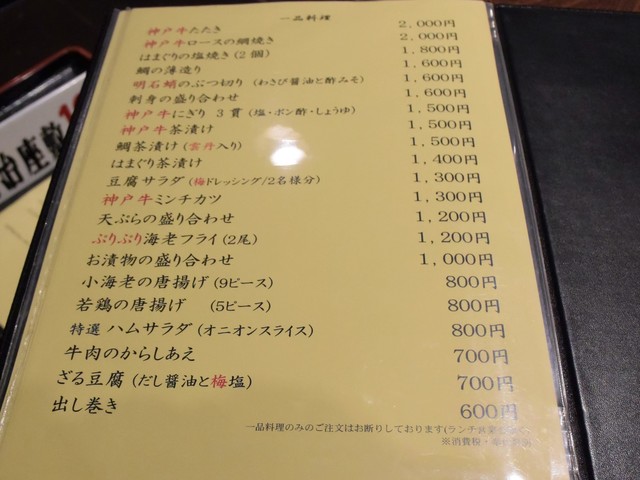 一品料理
神戸牛たたき 2,000円
神戸牛ロースの網焼き 2,000円
はまぐりの塩焼き(2個) 1,800円
鯛の薄造り 1,600円
明石蛸のぶつ切り (わさび醤油と酢みそ) 1,600円
刺身の盛り合わせ 1,600円
神戸牛にぎり 3貫 (塩・ポン酢・しょうゆ) 1,500円
神戸牛茶漬け 1,500円
鯛茶漬け (雲丹入り) 1,500円
はまぐり茶漬け 1,400円
豆腐サラダ (梅ドレッシング/2名様分) 1,300円
神戸牛ミンチカツ 1,300円
天ぷらの盛り合わせ 1,200円
ぷりぷり海老フライ (2尾) 1,200円
お漬物の盛り合わせ 1,000円
小海老の唐揚げ (9ピース) 800円
若鶏の唐揚げ (5ピース) 800円
特選 ハムサラダ (オニオンスライス) 800円
牛肉のからしあえ 700円
ざる豆腐 (だし醤油と梅塩) 700円
出し巻き 600円
一品料理のみのご注文はお断りしております(ランチ営業
※消費税・
座敷